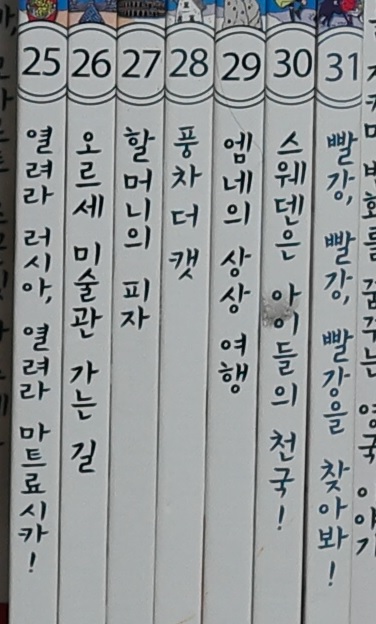 25 열려라 러시아, 열려라 마트료시카!
26 오르세 미술관 가는 길
27 할머니의 피자
28 풍차 더 캣
29 엠네의 상상 여행
30 스웨덴은 아이들의 천국!
31 빨강, 빨강, 빨강을 찾아봐!
꿈꾸는 영국 이야기